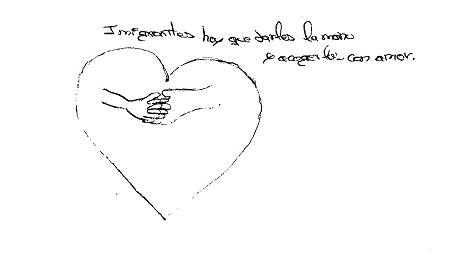 Imigrantes hay que darles la mano
y acogerles con amor.